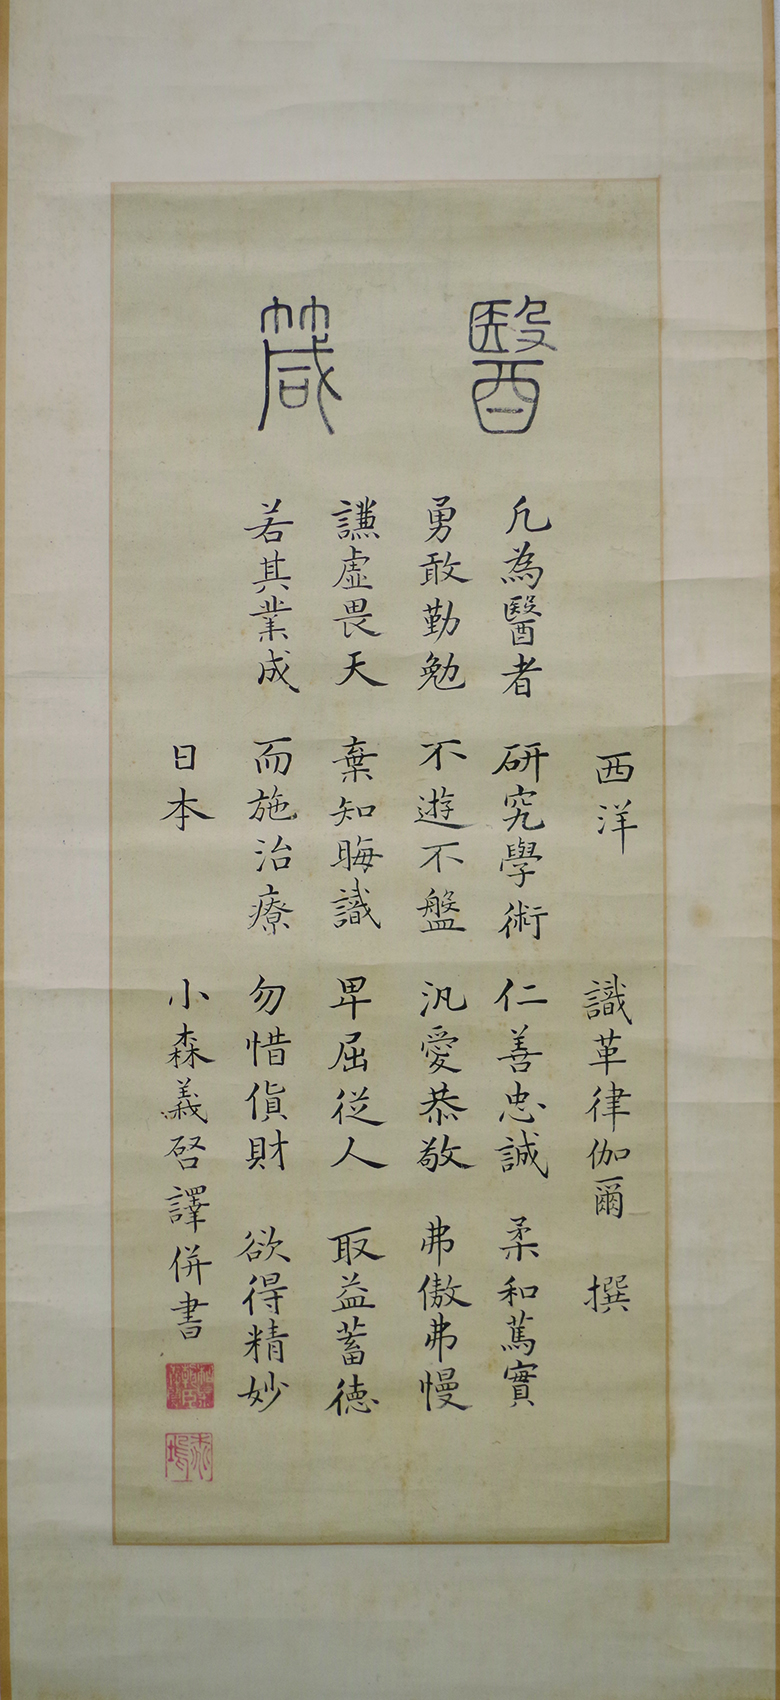 醫箴
西洋 識革律伽爾 撰
凡為醫者 研究學術 仁善忠誠 柔和篤實
勇敢勤勉 不遊不盤 汎愛恭敬 弗傲弗慢
謙虛畏天 棄知晦識 卑屈從人 取益蓄德
若其業成 而施治療 勿惜貨財 欲得精妙
日本 小森義啓譯併書